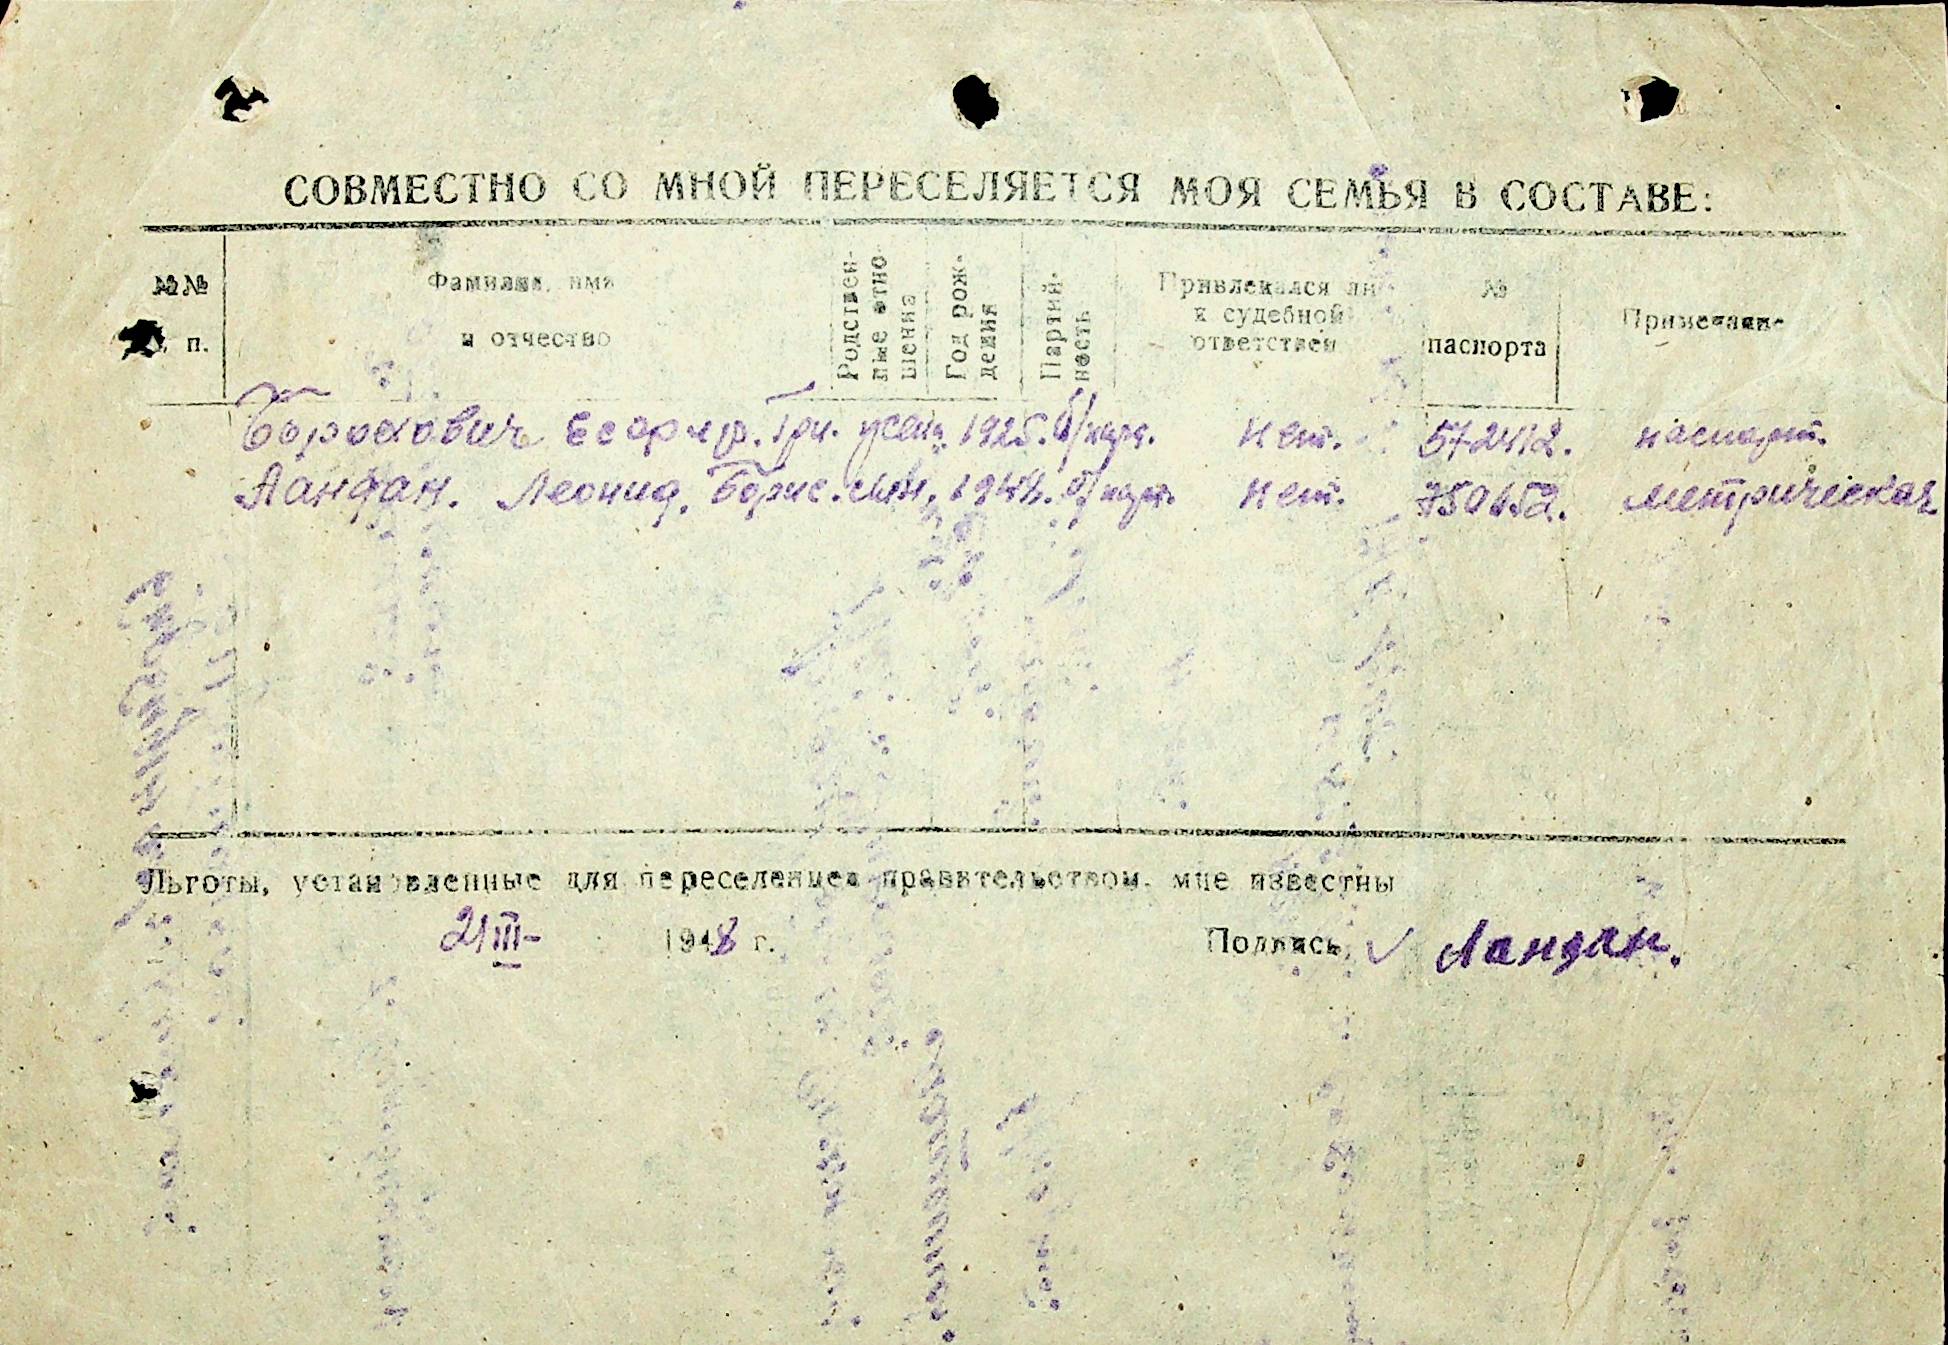 СОВМЕСТНО СО МНОЙ ПЕРЕСЕЛЯЕТСЯ МОЯ СЕМЬЯ В СОСТАВЕ:
№№ п.
Фамилия, имя и отчество
Родствен-
ные отно-
шения
Год рож-
дения
Партий-
ность
Привлекался ли
к судебной
ответствен
№
паспорта
Примечание
Борохович 1925. б/парт. Нет. 572412. паспорт.
Ландан. Леонид. Борис. сын. 1948. б/парт. Нет. метрическая
Льготы, установленные для переселенцев правительством, мне известны
21 III- 1948 г. Подпись Ландан.